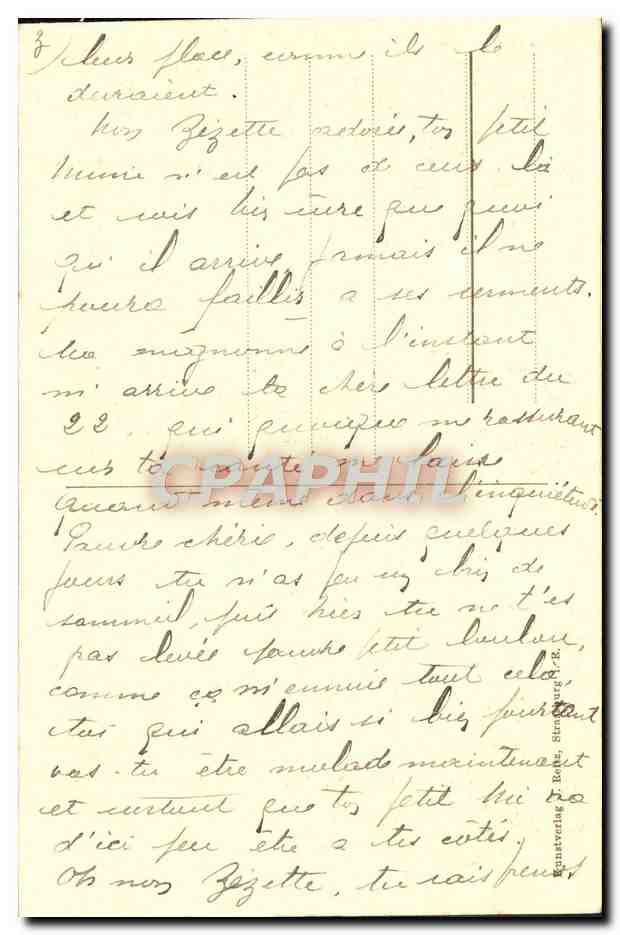 3) leur place, comme ils le
devraient.
Mon Zézette adorée, ton petit
Mimi n'est pas de ceux là
et sois bien sûre que quoi
qu'il arrive jamais il ne
pourra faillir a ses serments.
Ma mignonne à l'instant
m'arrive ta chère lettre du
22. qui quoique me rassurant
sur ta santé me laisse
quand même dans l'inquiétude.
Pauvre chérie, depuis quelques
jours tu n'as pu de
sommeil, puis hier tu ne t'es
pas levée pauvre petit loulou,
comme ça m'ennuie tout cela,
toi qui allais si bien pourtant
vas-tu être malade maintenant
et surtout que ton petit Mi va
d'ici peu être a tes côtés.
Oh mon Zézette, tu sais
CPAPHIL
Kunstverlag J. Renz, Strassburg i. E.